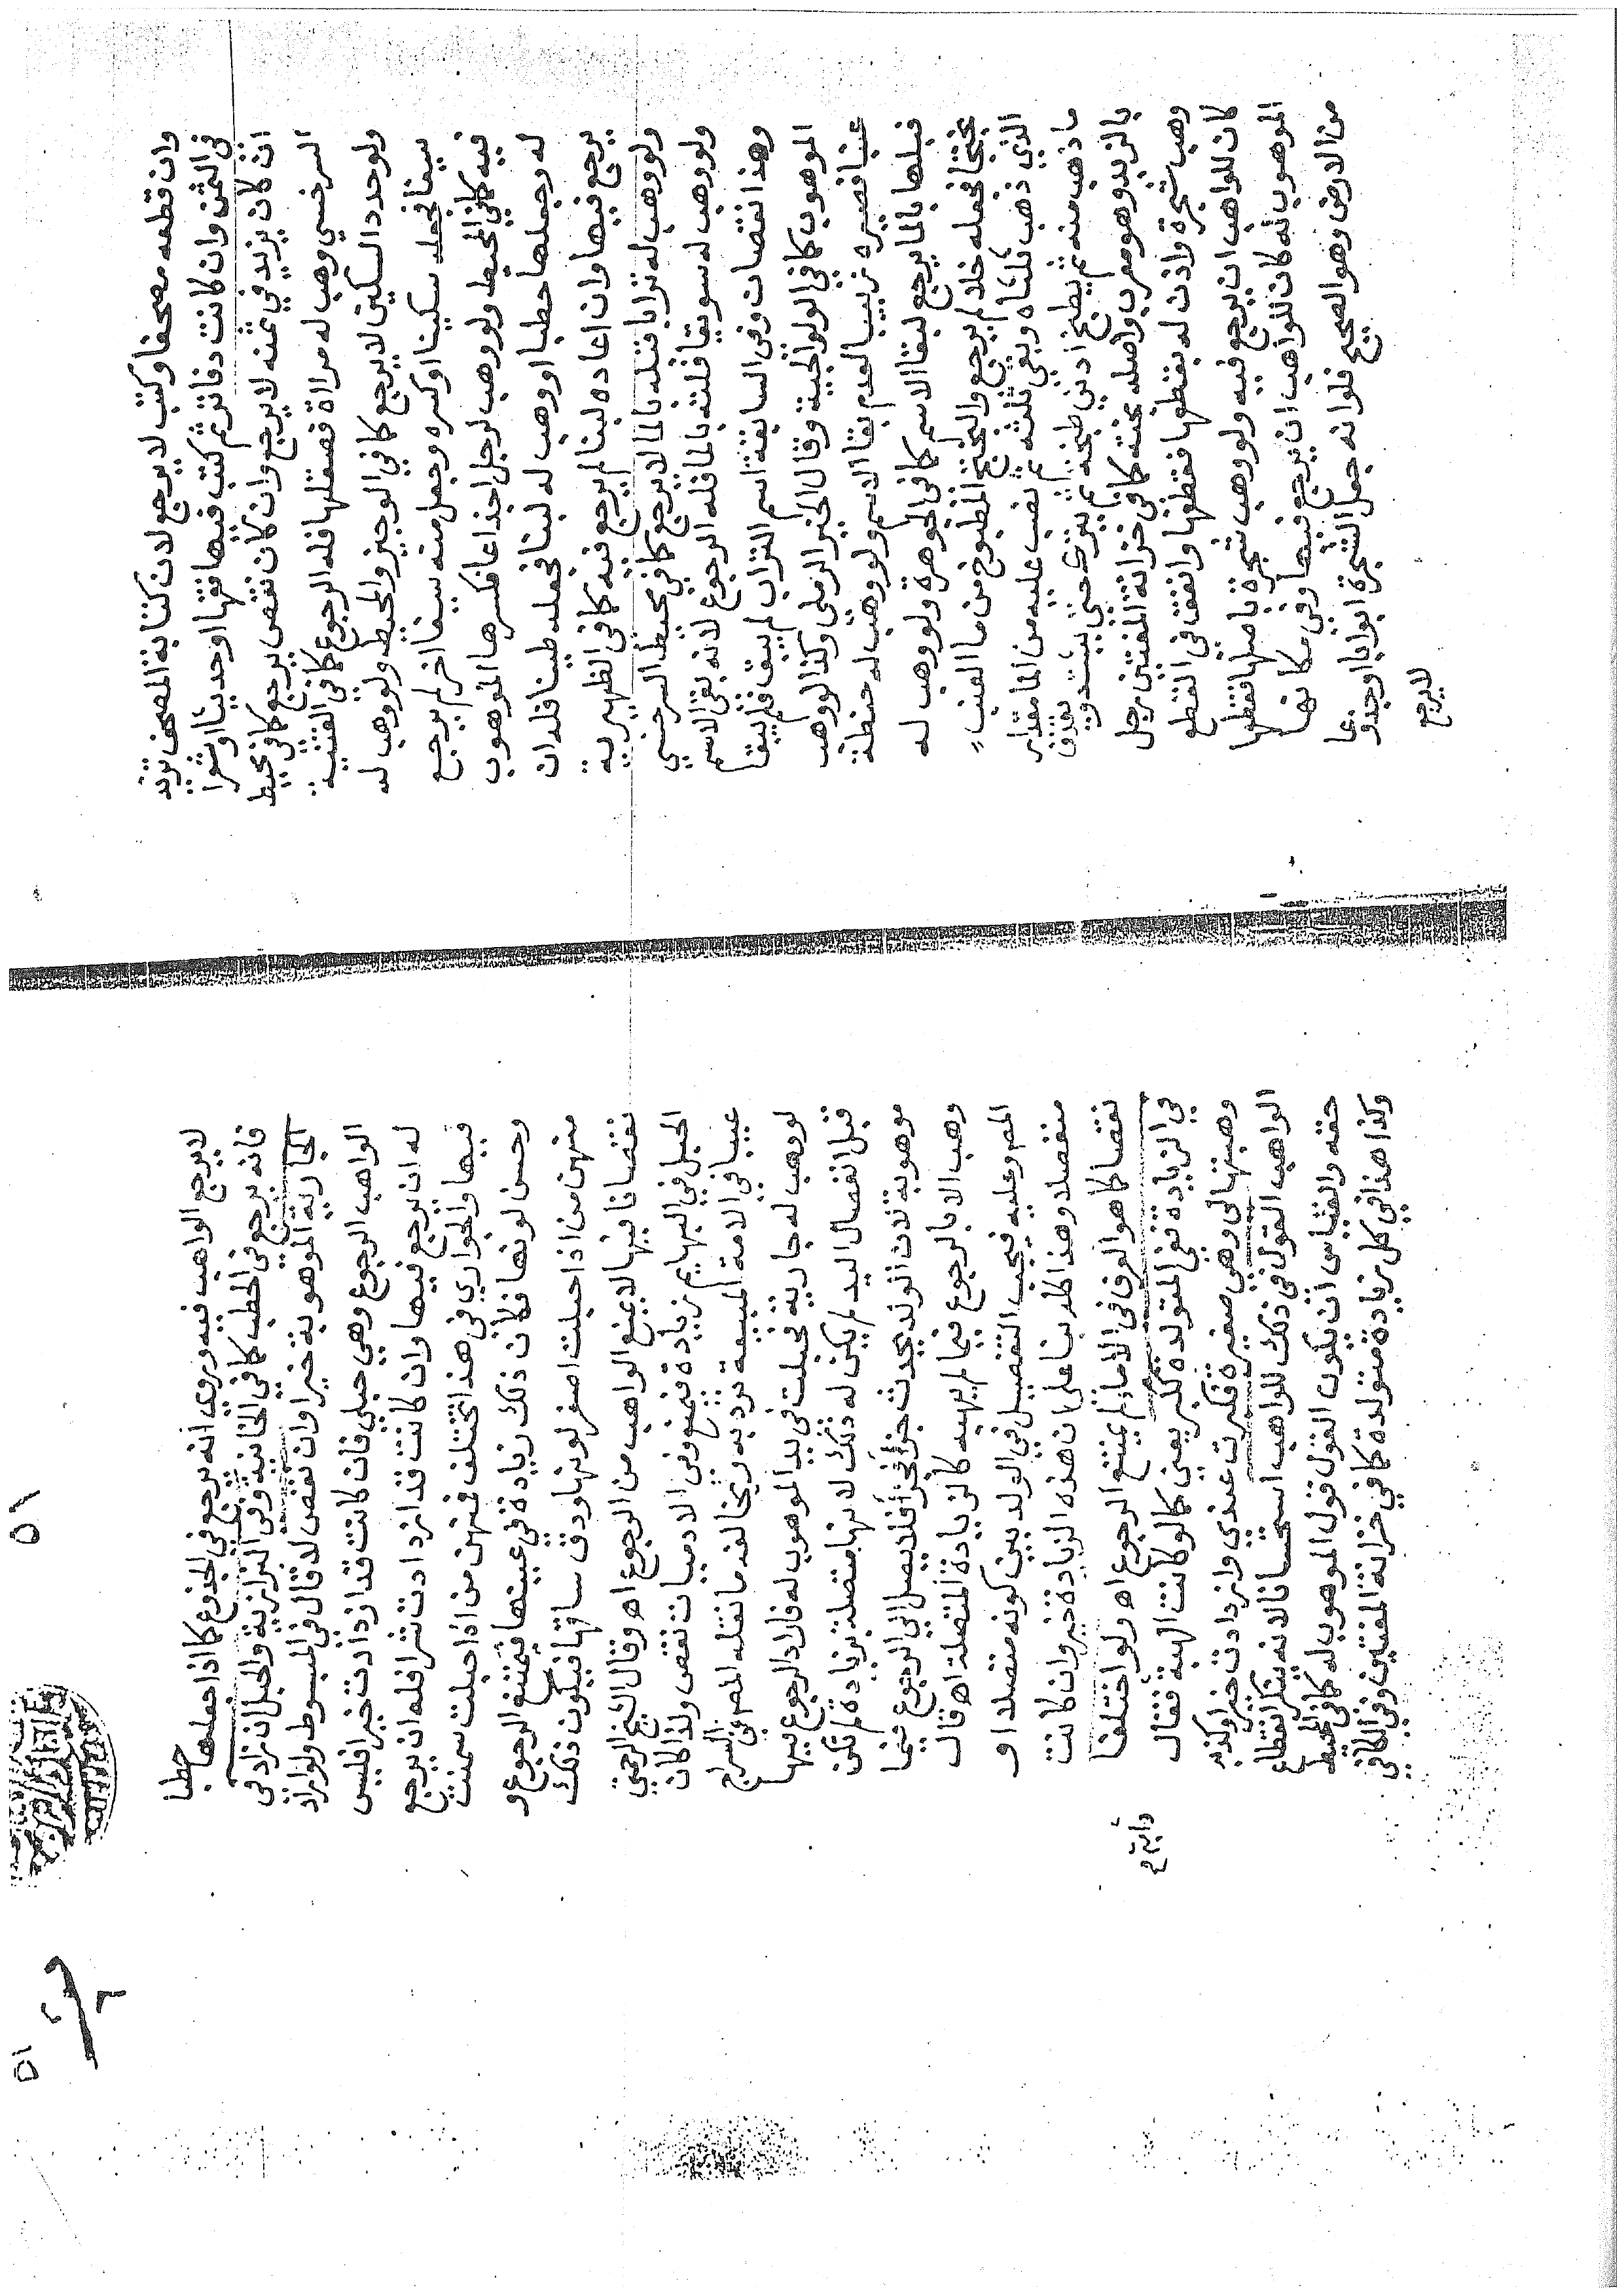 وان قطعه مصحفا وكتب لا يرجع لان كتابة المصحف تزيد
في الثمن وان كانت دفاتر ثم كتب فيها فقها او حديثا او شعرا
ان كان يزيد في ثمنه لا يرجع وان كان نقص يرجع كافي محيط
السرخسي وهب له مراة فصقلها فله الرجوع كما في القنية
ولو حدد السكين لا يرجع كافي الوجيز والمحيط ولو وهب له
سيفا فجعله سكينا او كسره وجعل منه سيفا اخر لم يرجع
فيه كافي المحيط ولو وهب لرجل اجذاعا فكسرها الموهوب
له وجعلها حطبا او وهب له لبنا فجعله طينا فله ان
يرجع فيها وان اعاده لبنا لم يرجع فيه كافي الظهيرية
ولو وهب له ترابا فبله بالما لا يرجع كافي محيط السرخسي
ولو وهب له سويقا فلته بالما فله الرجوع لانه بقي الاسم
وهذا نقصان وفي السابقة اسم التراب لم يبق فلم يبقا
الموهوب كافي الولوالجية وقال الخير الرملي وكذا لو وهب
عنبا فصيره زبيبا لعدم بقا الاسم ولو وهب له حنطة
فبلها بالما يرجع لبقا الاسم كافي الجوهرة ولو وهب له
بختجا فجعله خلا لم يرجع والبختج المطبوخ من ما العنب
الذي ذهب ثلثاه وبقي ثلثه ثم نصب عليه من الما مقدار
ما ذهب منه ثم يطبخ ادني طبخة ثم يترك حتي يشتد ويقذف
بالزبد وهو معرب واصله بخته كافي خزانة المفتين رجل
وهب شجرة واذن له بقطعها فقطعها وانفق في القطع
كان للواهب ان يرجع فيه ولو وهب شجرة باصلها فقطعها
الموهوب له كان للواهب ان يرجع فيها وفي مكانها
من الارض وهو الصحيح فلو انه جعل الشجرة ابوابا او جذوعا
لا يرجع
٥١
٥١
لا يرجع الواهب فيه وروي انه يرجع في الجذوع كما اذا جعلها حطبا
فانه يرجع في الحطب كافي الخانية وفي البزازية والحبل ان زاد في
الجارية الموهوبة خيرا وان نقص لا قال في المبسوط ولو اراد
الواهب الرجوع وهي حبلي فان كانت قد ازدادت خيرا فليس
له ان يرجع فيها وان كانت قد ازدادت شرا فله ان يرجع
فيها والجواري في هذا تختلف فمنهن من اذا حبلت سمنت
وحسن لونها فكان ذلك زيادة في عينها فيمتنع الرجوع و
منهن من اذا حبلت اصفر لونها ودق ساقها فيكون ذلك
نقصانا فيها لا يمنع الواهب من الرجوع اه وقال الشيخ الرحمتي
الحبل في البهايم زيادة فيمنع وفي الادميات نقص ولذا كان
عيبا في الامة المبيعة ترد به ويخالفه ما نقله المص عن السراج
لو وهب له جارية فحبلت في يد الموهوب له فاراد الرجوع فيها
قبل انفصال الولد لم يكن له ذلك لانها متصلة بزيادة لم تكن
موهوبة لان الولد يحدث جزأ فجزأ فلا يصل الي الرجوع فيما
وهب الا بالرجوع فيما لم يهبه كالزيادة المتصلة اه قال
المص وعليه فيجب التفصيل في الولد بين كونه متصلا او
منفصلا وهذا كله بنا علي ان هذه الزيادة خير وان كانت
نقصا كما هو العرف في الاماء لم يمتنع الرجوع اه ولو اختلفا
في الزيادة ففي المتولدة ككبر يعني كما لو كانت الهبة فقال
وهبتها لي وهي صغيرة فكبرت عندي وازدادت خيرا وكذبه
الواهب القول في ذلك للواهب استحسانا لانه ينكر انقطاع
حقه والقياس ان يكون القول قول الموهوب له كافي المحيط
وكذا هذا في كل زيادة متولدة كما في خزانة المفتين وفي الكافي